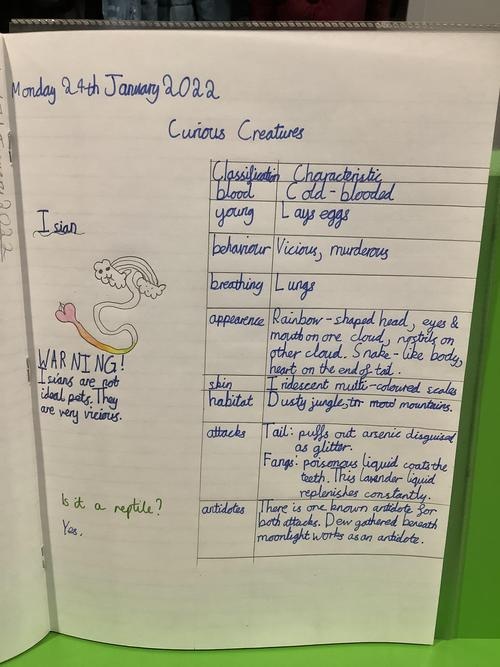 Monday 24th January 2022
Curious Creatures
Classification Characteristic
blood Cold-blooded
young Lays eggs
Isian
behaviour Vicious, murderous
breathing Lungs
appearence Rainbow-shaped head, eyes &
mouth on one cloud, nostrils on
other cloud. Snake-like body,
heart on the end of tail.
WARNING!
Isians are not
ideal pets. They
are very vicious.
skin Iridescent multi-coloured scales
habitat Dusty jungle, mountains.
attacks Tail: puffs out arsenic disguised
as glitter.
Fangs: poisonous liquid coats the
teeth. This lavender liquid
replenishes constantly.
Is it a reptile?
Yes.
antidotes There is one known antidote for
both attacks. Dew gathered beneath
moonlight works as an antidote.